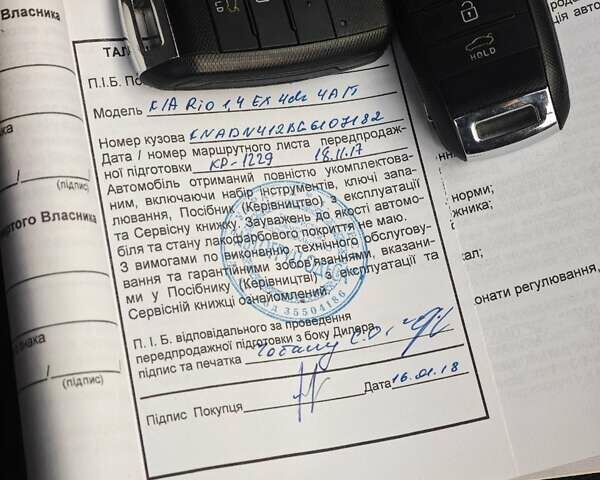 Власника
(підпис)
ого Власника
ка
(підпис)
ТАЛ
П.І.Б. По
Модель KIA Rio 1.4 EX 4dr 4AT
Номер кузова
Дата / номер маршрутного листа передпродаж-
ної підготовки КР-1229 18.11.17
Автомобіль отриманий повністю укомплектова-
ним, включаючи набір інструментів, ключі запа-
лювання, Посібник (Керівництво) з експлуатації
та Сервісну книжку. Зауважень до якості автомо-
біля та стану лакофарбового покриття не маю.
З вимогами по виконанню технічного обслугову-
вання та гарантійними зобов'язаннями, вказани-
ми у Посібнику (Керівництві) з експлуатації та
Сервісній книжці ознайомлений.
35504186
П. І. Б. відповідального за проведення
передпродажної підготовки з боку Дилера,
підпис та печатка
Дата 16.01.18
Підпис Покупця
HOLD
ція авто
норми;
жника;
ал;
онати регулювання,